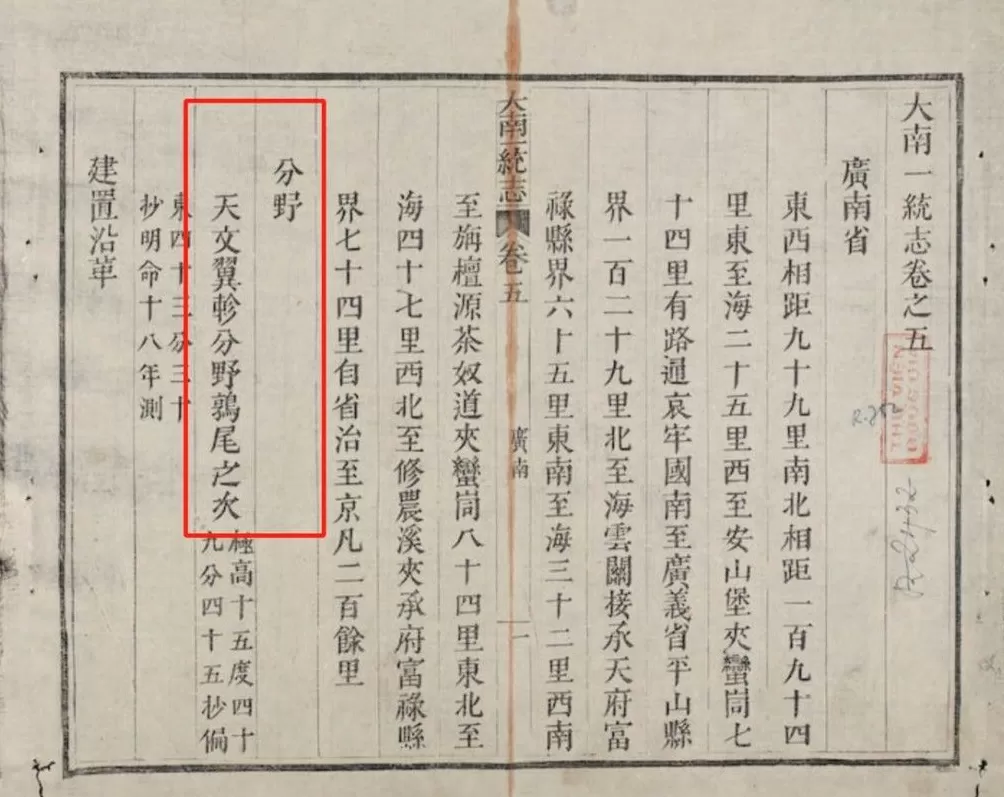 大南一統志卷之五
廣南省
東西相距九十九里南北相距一百九十四
里東至海二十五里西至安山堡夾蠻峝七
十四里有路通哀牢國南至廣義省平山縣
界一百二十九里北至海雲關接承天府富
祿縣界六十五里東南至海三十二里西南
大南一統志 卷五 廣南 一
至旃檀源茶奴道夾蠻峝八十四里東北至
海四十七里西北至修農溪夾承府富祿縣
界七十四里自省治至京凡二百餘里
分野
天文翼軫分野鶉尾之次
極高十五度四十
九分四十五抄偏
東四十三分三十
抄明命十八年測
建置沿革